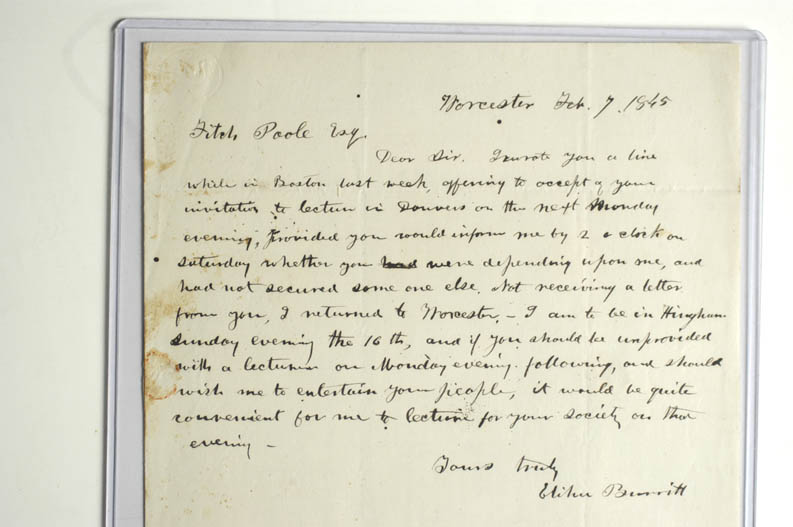 Worcester Feb. 7. 1845
Fitch Poole Esq.
Dear Sir. I wrote you a line
while in Boston last week, offering to accept of your
invitation to lecture in Danvers on the next Monday
evening, provided you would inform me by 2 o clock on
Saturday whether you had were depending upon me, and
had not secured some one else. Not receiving a letter
from you, I returned to Worcester. – I am to be in Hingham
Sunday evening the 16th, and if you should be unprovided
with a lecturer on Monday evening following, and should
wish me to entertain your people, it would be quite
convenient for me to lecture for your Society on that
evening –
Yours truly
Elihu Burritt